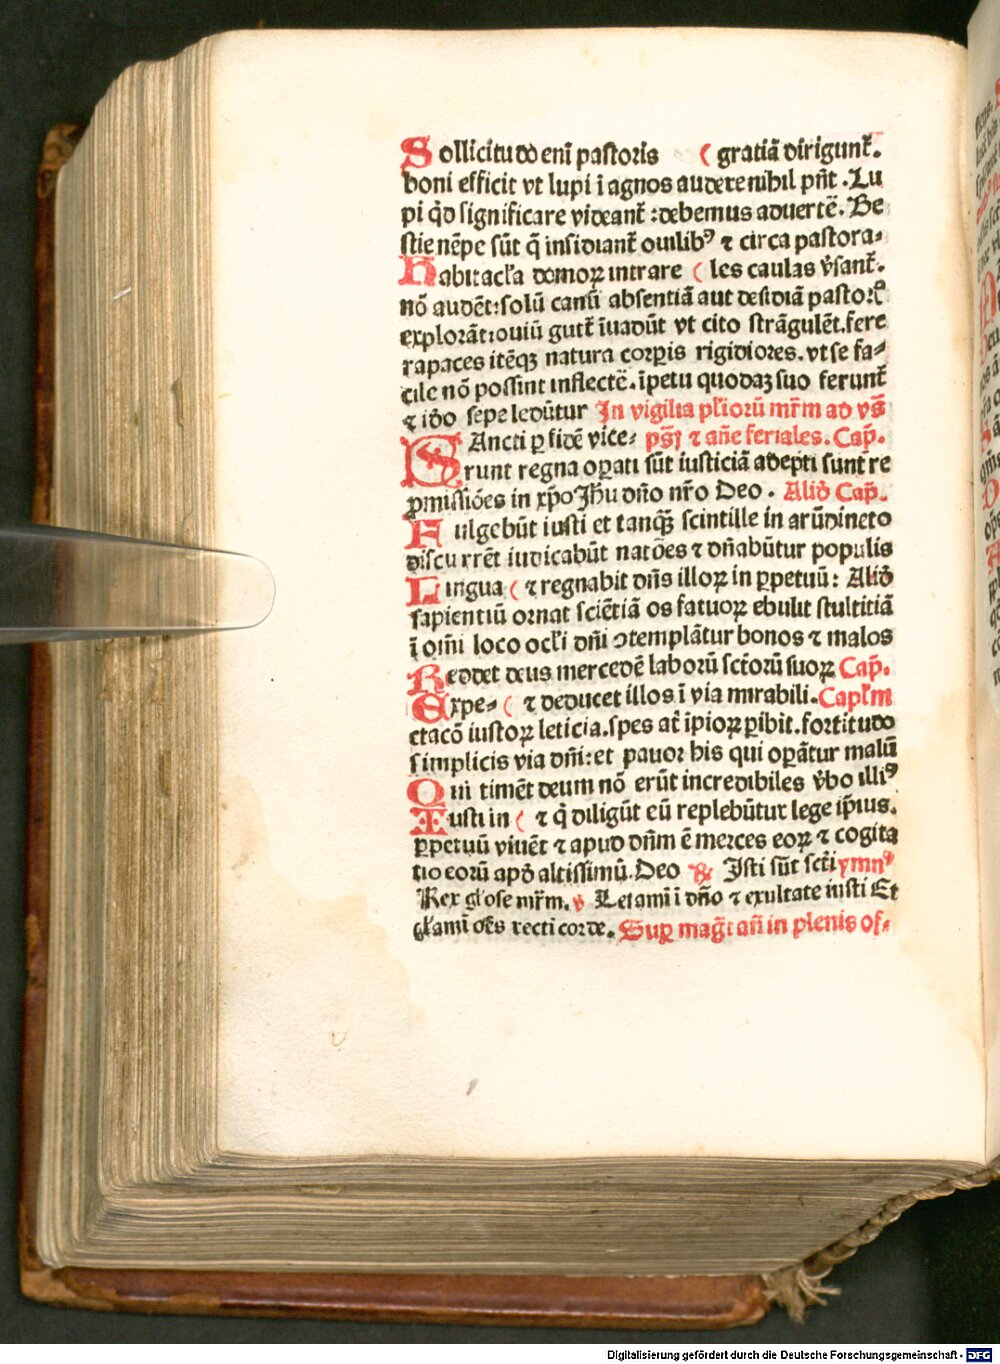 Sollicitudo enī pastoris ( gratiā dirigunt᷑.
boni efficit vt lupi ī agnos audere nihil pn̄t . Lu
pi q̇d significare videant᷑ : debemus aduertē. Be
stie nēpe sūt q̄ insidiant᷑ ouilibꝰ ⁊ circa pastora⸗
Habitacl̓a domoꝝ intrare ( les caulas v̓sant᷑.
nō audēt: solū canū absentiā aut desidiā pastoꝝ
explorāt: ouiū gutt᷑ īuadūt vt cito strāgulēt. fere
rapaces itēqꝫ natura corpis rigidiores. vt se fa⸗
cile nō possint inflectē. īpetu quodaꝫ suo ferunt᷑
⁊ iḋo sepe ledūtur In vigilia pl̓iorū mr̄m ad vs̄
SAncti ꝑ fidē vice⸗ ps̄ꝫ ⁊ añe feriales. Cap̄.
runt regna oꝑati sūt iusticiā adepti sunt re
ꝓmissiōes in xp̄o Jh̄u dn̄o nr̄o Deo . Aliḋ Cap̄.
Fulgebūt iusti et tanqꝫ̄ scintille in arūdineto
discurrēt iudicabūt natōes ⁊ dn̄abūtur populis
Lingua ( ⁊ regnabit dn̄s illoꝝ in ꝑpetuū : Aliḋ
sapientiū ornat sciētiā os fatuoꝝ ebulit stultitiā
ī om̄i loco ocl̓i dn̄i ↄtemplātur bonos ⁊ malos
Reddet deus mercedē laborū sct̄orū suoꝝ Cap̄.
Expe⸗ ( ⁊ deducet illos ī via mirabili. Capl̓m
ctacō iustoꝝ leticia. spes at̄ īpioꝝ ꝑibit. fortitudo
simplicis via dn̄i: et pauor his qui oꝑātur malū
Qui timēt deum nō erūt incredibiles v̓bo illiꝰ
Iusti in ( ⁊ q̇ diligūt eū replebūtur lege ip̄ius.
ꝑpetuū viuēt ⁊ apud dn̄m ē merces eoꝝ ⁊ cogita
tio eorū apḋ altissimū. Deo ℟ Isti sūt sct̄i ymnꝰ
Rex gl̓ose mr̄m. ℣ Letami ī dn̄o ⁊ exultate iusti Et
gl̓ami oēs recti corde. Suꝑ mag̅t añ in plenis of⸗
Digitalisierung gefördert durch die Deutsche Forschungsgemeinschaft - DFG